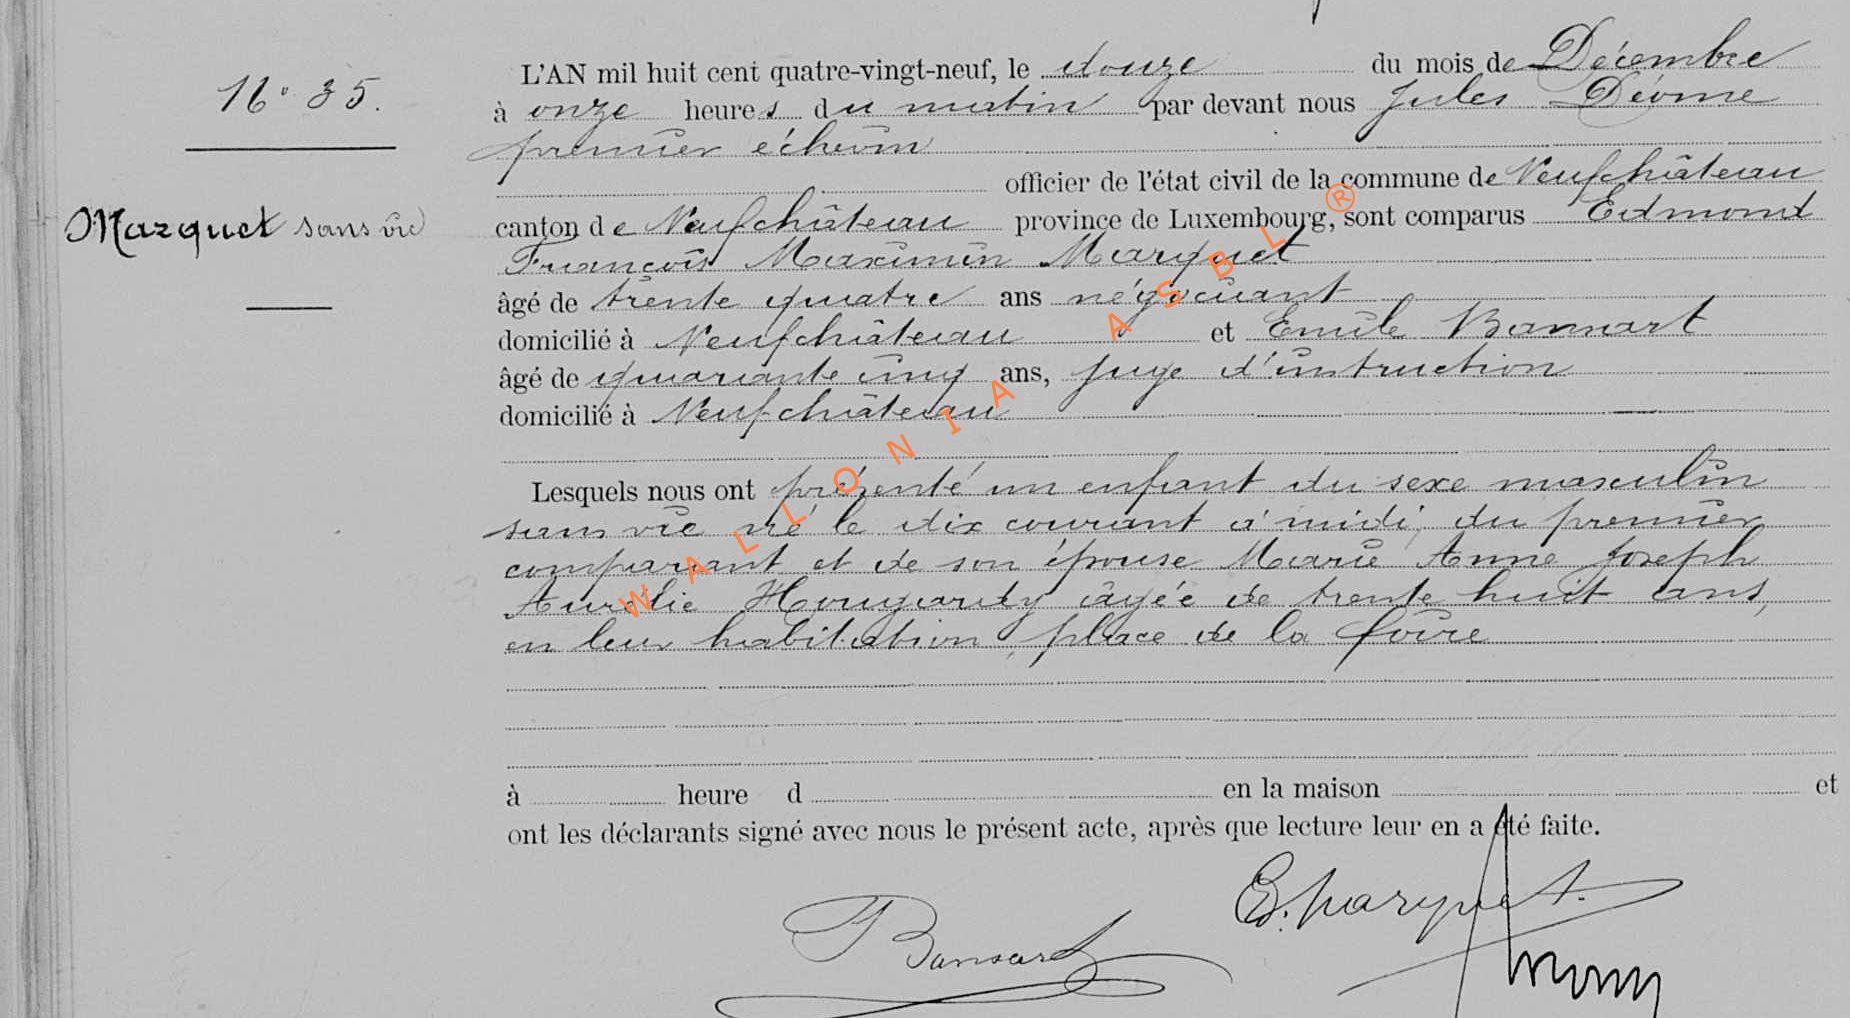 L'AN mil huit cent quatre-vingt-neuf, le douze du mois de Décembre
N° 35.
à onze heures du matin par devant nous Jules Déome
premier échevin
officier de l'état civil de la commune de Neufchâteau
Marquet sans vie
canton de Neufchâteau province de Luxembourg, sont comparus Edmond
François Maximin Marquet
âgé de trente quatre ans négociant
domicilié à Neufchâteau et Emile Bansart
âgé de quarante cinq ans, juge d'instruction
domicilié à Neufchâteau
Lesquels nous ont présenté un enfant du sexe masculin
sans vie né le dix courant à midi, du premier
comparant et de son épouse Marie Anne Joseph
Aurélie Hougardy âgée de trente huit ans,
en leur habitation, place de la foire
à heure d en la maison et
ont les déclarants signé avec nous le présent acte, après que lecture leur en a été faite.
E. Marquet.
Bansart
WALLONIA ASBL ®